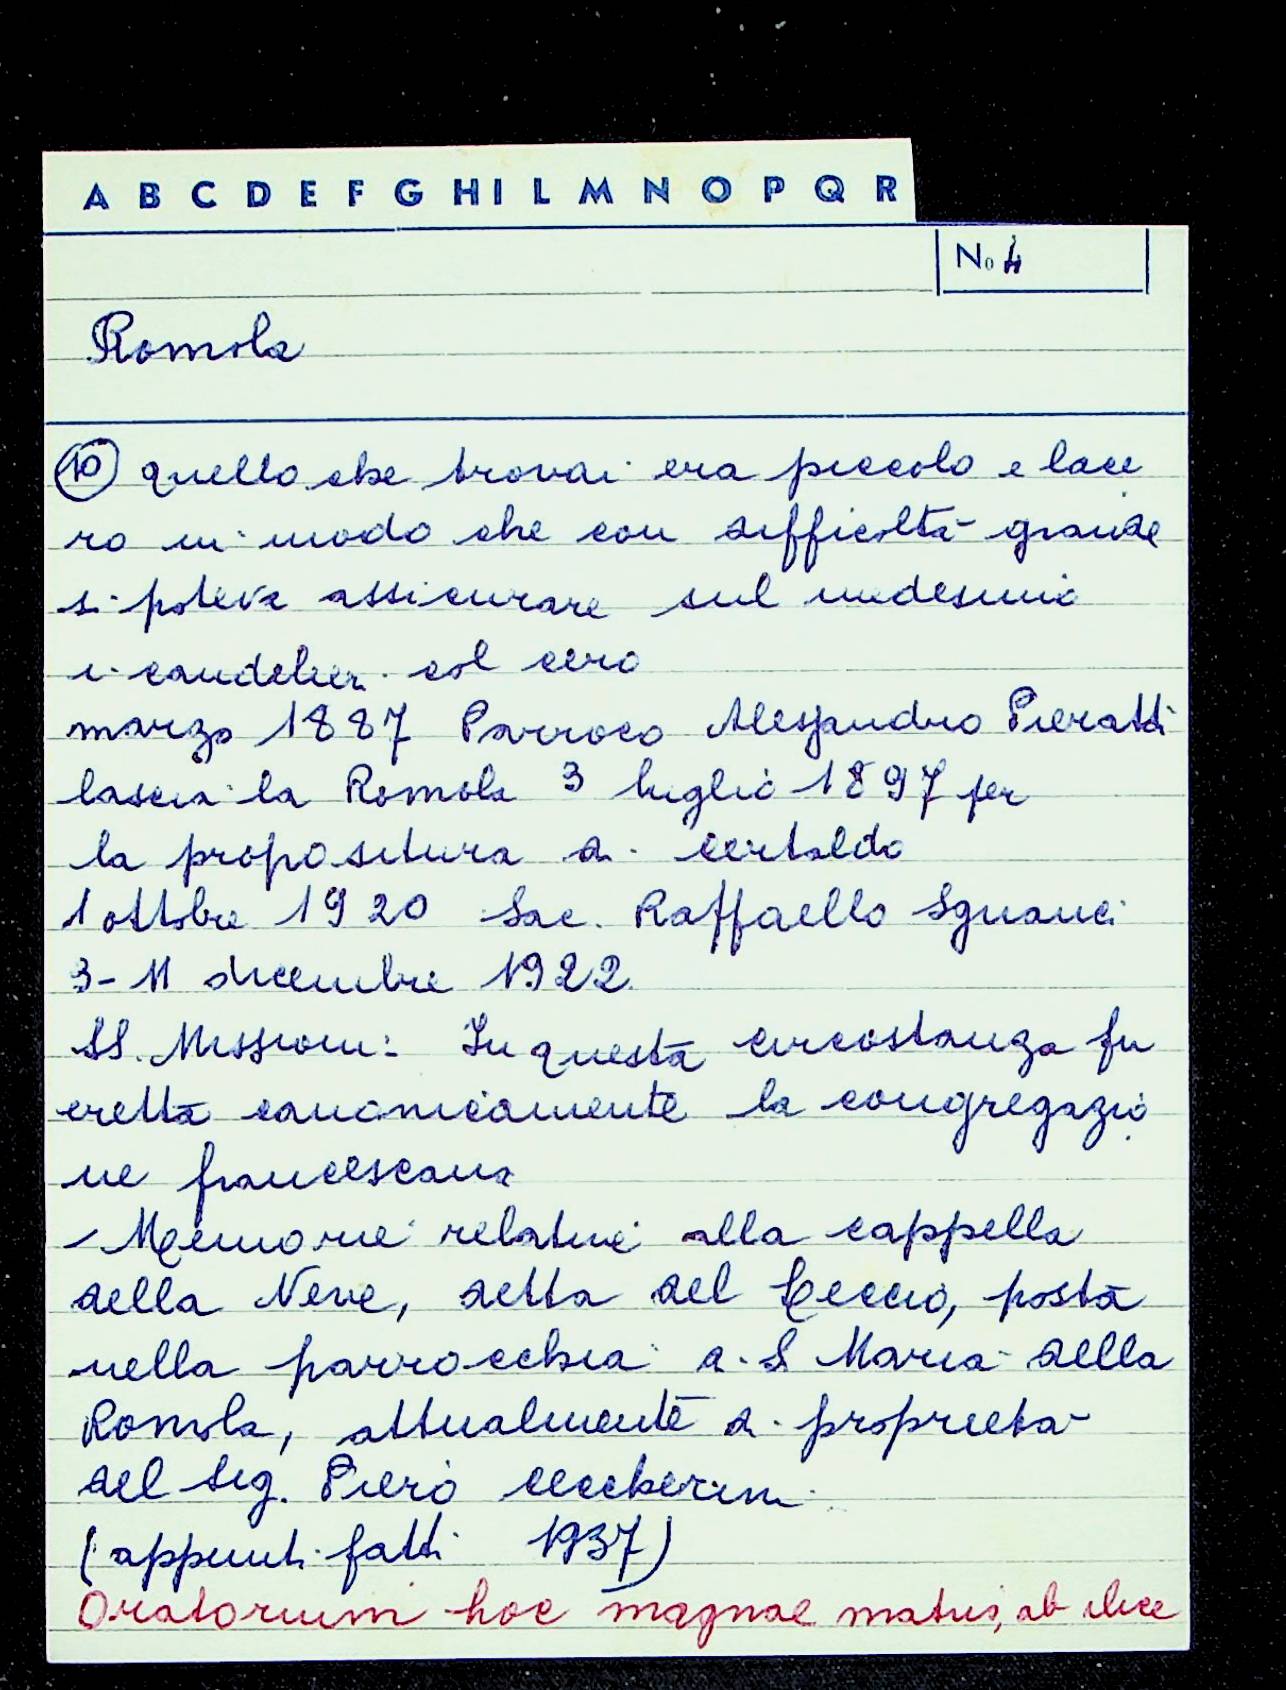 A B C D E F G H I L M N O P Q R
No 4
Romola
10 quello che trovai era piccolo e lace
ro in modo che con difficoltà grande
si poteva assicurare sul medesimo
i candelieri col cero
marzo 1887 Parroco Alessandro Pieratti
lascia la Romola 3 luglio 1897 per
la propositura di Certaldo
1 ottobre 1920 Sac. Raffaello Sguanci
3-11 dicembre 1922
SS. Missioni: In questa circostanza fu
eretta canonicamente la congregazio
ne francescana
- Memorie relative alla cappella
della Neve, detta del Leccio, posta
nella parrocchia di S Maria della
Romola, attualmente di proprietà
del sig. Piero Ceccherini
(appunti fatti 1937)
Oratorium hoc magnae matris, ab ilice